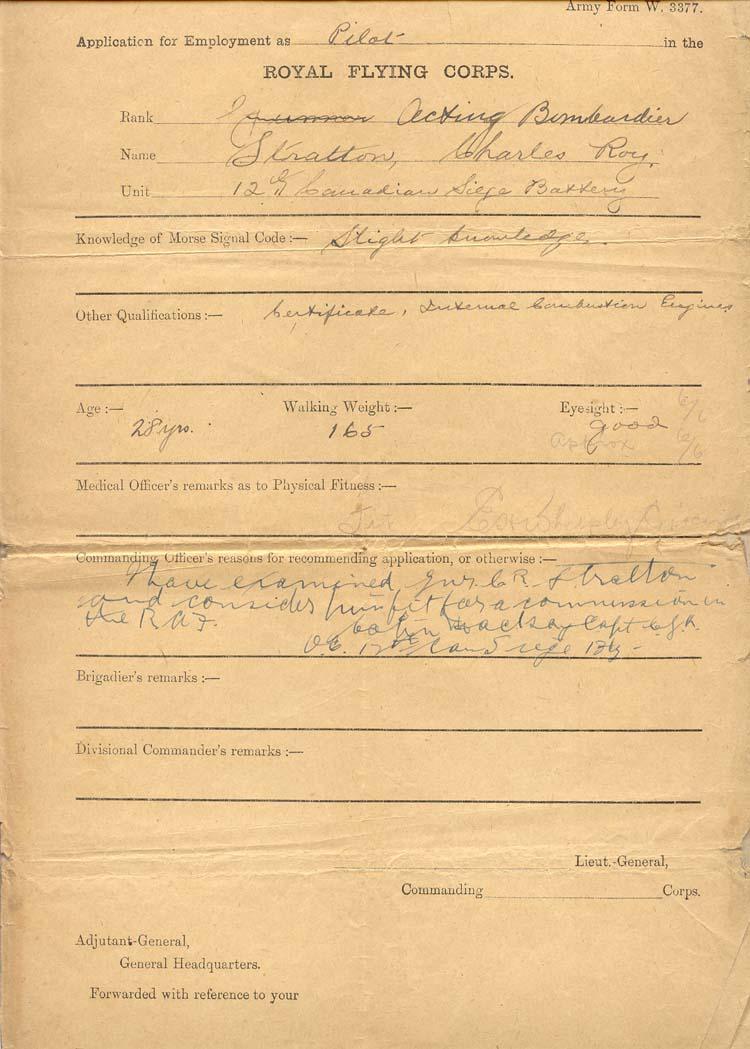 Army Form W. 3377.
Application for Employment as Pilot in the
ROYAL FLYING CORPS.
Rank Acting Bombardier
Name Stratton, Charles Roy.
Unit 12th Canadian Siege Battery
Knowledge of Morse Signal Code:— Slight knowledge.
Other Qualifications:— Certificate, Internal Combustion Engines
Age:— Walking Weight:— Eyesight:— 6/6
28 yrs. 165 good
approx 6/6
Medical Officer's remarks as to Physical Fitness:—
Fit
Commanding Officer's reasons for recommending application, or otherwise:—
I have examined Gnr. C.R. Stratton
and consider him fit for a commission in
the R A F.
Capt C.G.A.
O.C. 12th Can Siege Bty-
Brigadier's remarks:—
Divisional Commander's remarks:—
Lieut.-General,
Commanding Corps.
Adjutant-General,
General Headquarters.
Forwarded with reference to your